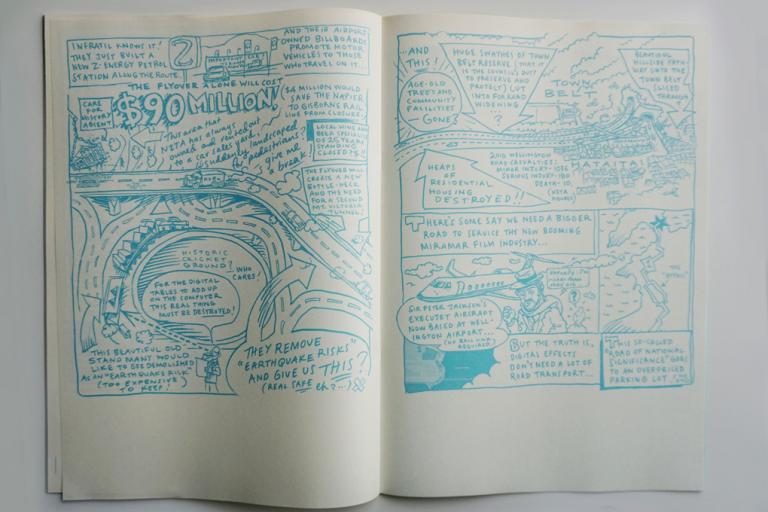 INFRATIL KNOWS IT!
THEY JUST BUILT A
NEW Z-ENERGY PETROL
STATION ALONG THE ROUTE
Z
AND THEIR AIRPORT
OWNED BILLBOARDS
PROMOTE MOTOR
VEHICLES TO THOSE
WHO TRAVEL ON IT.
THE FLYOVER ALONE WILL COST
$90 MILLION!
($4 MILLION WOULD
SAVE THE NAPIER
TO GISBORNE RAIL
LINE FROM CLOSURE)
CARE
FOR
MISERY
AGENT
This area that
NZTA has always
owned and rented out
to a car sales yard,
is suddenly landscaped
for pedestrians?
give me
a break!
LOCAL
BEER
OF 25 YEARS
STANDING
CLOSED
THE FLYOVER WILL
CREATE A NEW
BOTTLE-NECK
AND THE NEED
FOR A SECOND
MT. VICTORIA
TUNNEL!
HISTORIC
CRICKET
GROUND?
WHO
CARES!
FOR THE DIGITAL
TABLES TO ADD UP
ON THE COMPUTER
THIS REAL THING
MUST BE DESTROYED!
THIS BEAUTIFUL OLD
STAND MANY WOULD
LIKE TO SEE DEMOLISHED
AS AN "EARTHQUAKE RISK"
(TOO EXPENSIVE)
TO KEEP!
THEY REMOVE
"EARTHQUAKE RISKS"
AND GIVE US THIS?
(REAL SAFE eh?...)
...AND
THIS!
AGE-OLD
TREES AND
COMMUNITY
FACILITIES
—GONE!
HUGE SWATHES OF TOWN
BELT RESERVE (THAT IT
IS THE COUNCIL'S DUTY
TO PRESERVE AND
PROTECT) CUT
INTO FOR ROAD
WIDENING
?
TOWN
BELT
BEAUTIFUL
HILLSIDE PATH
WAY ONTO THE
TOWN BELT
SLICED
THROUGH
HATAITAI
HEAPS
OF
RESIDENTIAL
HOUSING
DESTROYED!!
2010 WELLINGTON
ROAD CASUALTIES:
MINOR INJURY-1036
SERIOUS INJURY-180
DEATH-10
(NZTA
FIGURES)
THERE'S SOME SAY WE NEED A BIGGER
ROAD TO SERVICE THE NEW BOOMING
MIRAMAR FILM INDUSTRY...
SIR PETER JACKSON'S
EXECUJET AIRCRAFT
NOW BASED AT WELL-
INGTON AIRPORT...
REQUIRED)
?
BUT THE TRUTH IS,
DIGITAL EFFECTS
DON'T NEED A LOT OF
ROAD TRANSPORT...
THIS SO-CALLED
"ROAD OF NATIONAL
SIGNIFICANCE" GOES
TO AN OVERPRICED
PARKING LOT